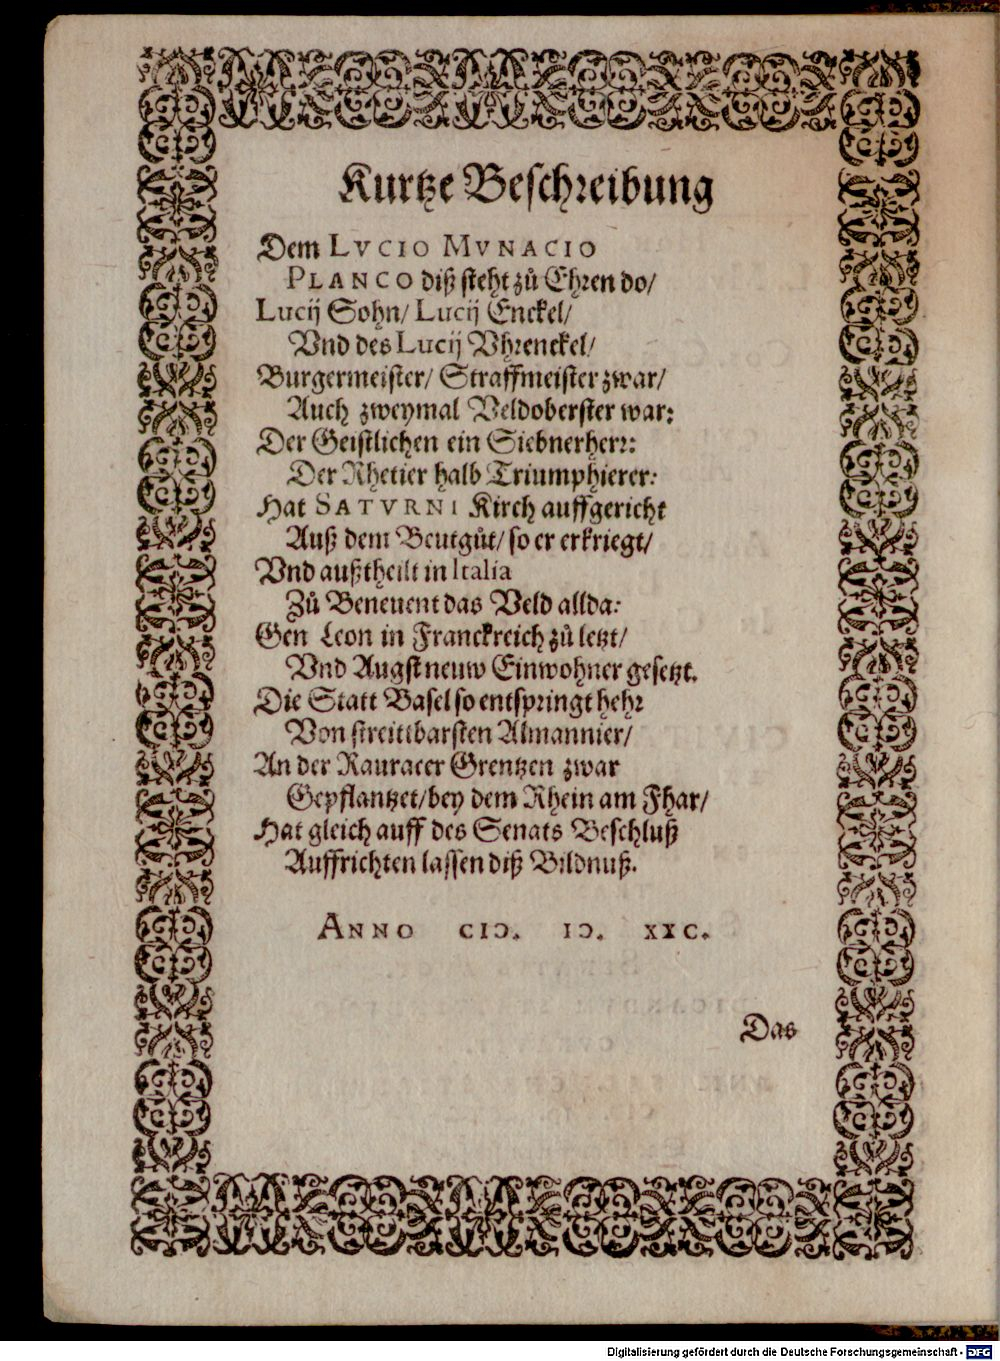 Kurtze Beschreibung
Dem LVCIO MVNACIO
PLANCO diß steht zů Ehren do/
Lucij Sohn/ Lucij Enckel/
Vnd des Lucij Vhrenckel/
Burgermeister/ Straffmeister zwar/
Auch zweymal Veldoberster war:
Der Geistlichen ein Siebnerherr:
Der Rhetier halb Triumphierer:
Hat SATVRNI Kirch auffgericht
Auß dem Beutgůt/ so er erkriegt/
Vnd außtheilt in Italia
Zů Beneuent das Veld allda:
Gen Leon in Franckreich zů letzt/
Vnd Augst neuw Einwohner gesetzt.
Die Statt Basel so entspringt hehr
Von streitibarsten Almannier/
An der Rauracer Grentzen zwar
Gepflantzet/ bey dem Rhein am Fhar/
Hat gleich auff des Senats Beschluß
Auffrichten lassen diß Bildnuß.
ANNO CIↃ. IↃ. XXC.
Das
Digitalisierung gefördert durch die Deutsche Forschungsgemeinschaft - DFG